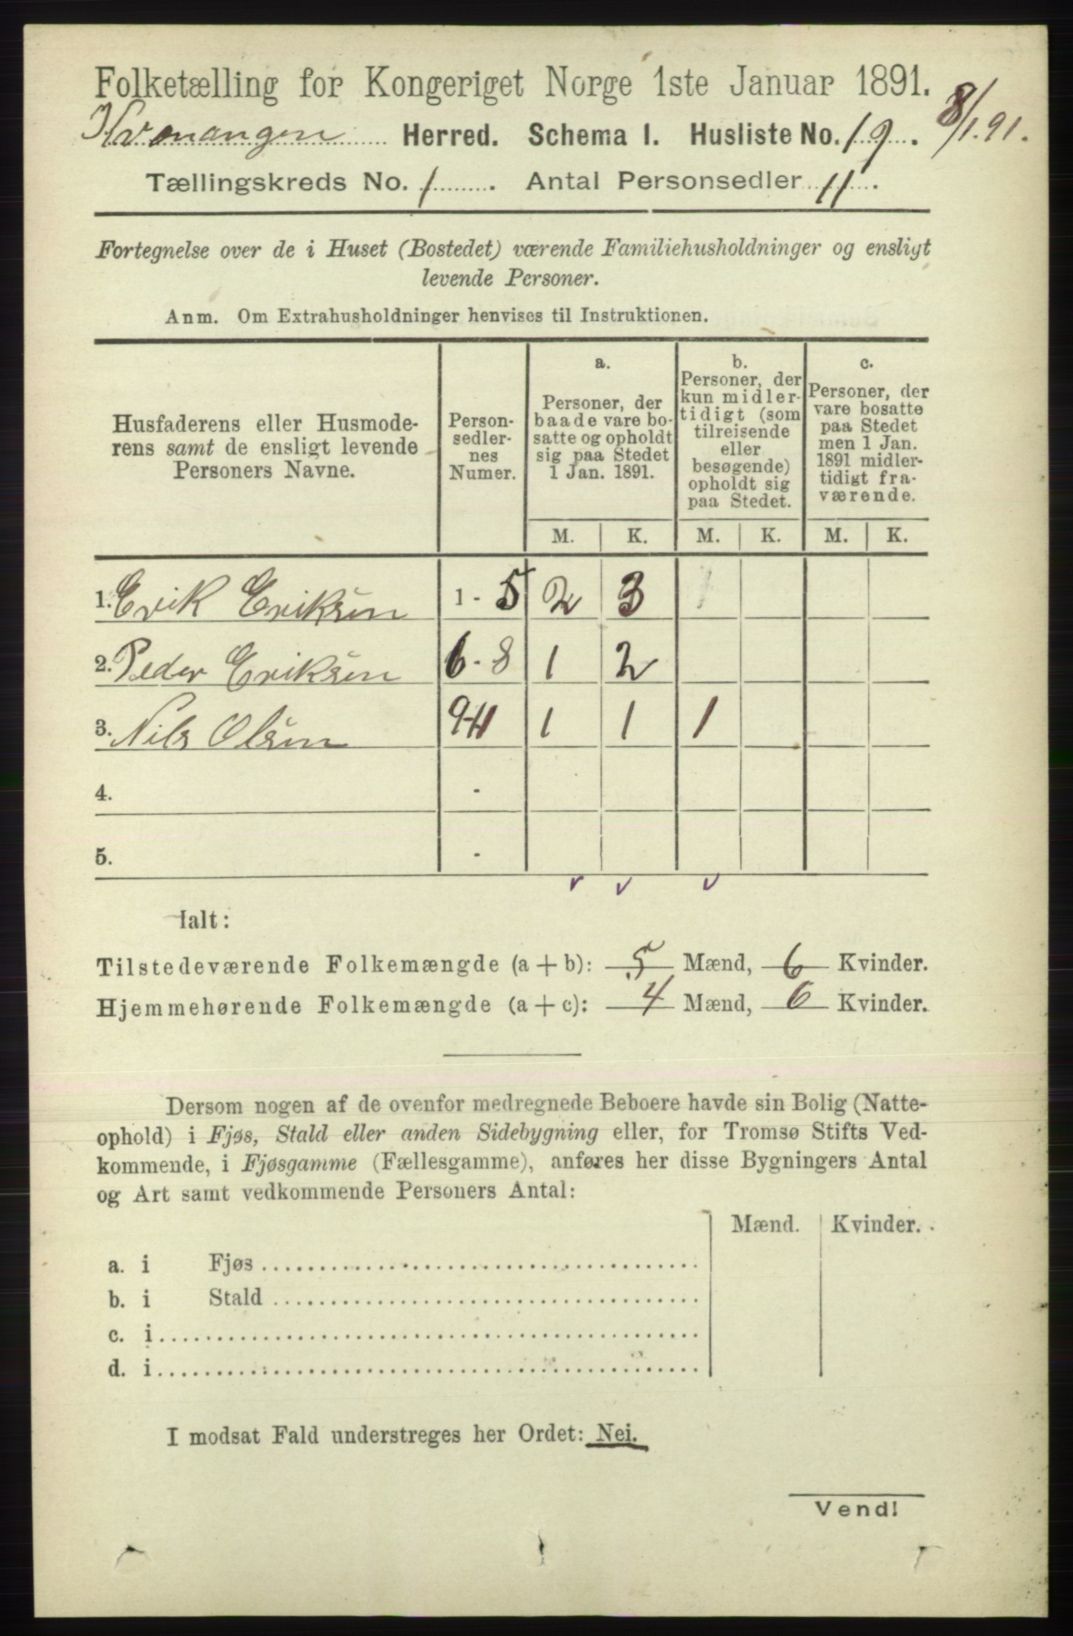 Folketælling for Kongeriget Norge 1ste Januar 1891.
Kvænangen Herred. Schema I. Husliste No. 19. 8/1.91.
Tællingskreds No. 1. Antal Personsedler 11.
Fortegnelse over de i Huset (Bostedet) værende Familiehusholdninger og ensligt
levende Personer.
Anm. Om Extrahusholdninger henvises til Instruktionen.
Husfaderens eller Husmode-
rens samt de ensligt levende
Personers Navne.
Person-
sedler-
nes
Numer.
a.
Personer, der
baade vare bo-
satte og opholdt
sig paa Stedet
1 Jan. 1891.
b.
Personer, der
kun midler-
tidigt (som
tilreisende
eller
besøgende)
opholdt sig
paa Stedet.
c.
Personer, der
vare bosatte
paa Stedet
men 1 Jan.
1891 midler-
tidigt fra-
værende.
M. K. M. K. M. K.
1. Erik Eriksen 1 - 5 2 3
2. Peder Eriksen 6 - 8 1 2
3. Nils Olsen 9-11 1 1 1
4. -
5. -
Ialt:
Tilstedeværende Folkemængde (a + b): 5 Mænd, 6 Kvinder.
Hjemmehørende Folkemængde (a + c): 4 Mænd, 6 Kvinder.
Dersom nogen af de ovenfor medregnede Beboere havde sin Bolig (Natte-
ophold) i Fjøs, Stald eller anden Sidebygning eller, for Tromsø Stifts Ved-
kommende, i Fjøsgamme (Fællesgamme), anføres her disse Bygningers Antal
og Art samt vedkommende Personers Antal:
Mænd. Kvinder.
a. i Fjøs
b. i Stald
c. i
d. i
I modsat Fald understreges her Ordet: Nei.
Vend!